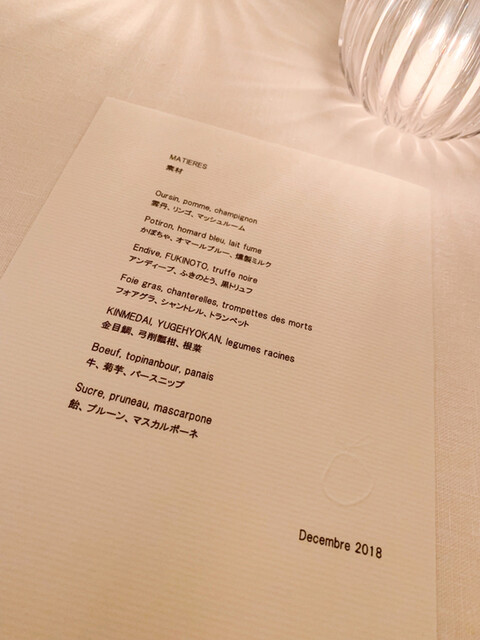 MATIERES
素材
Oursin, pomme, champignon
雲丹、リンゴ、マッシュルーム
Potiron, homard bleu, lait fume
かぼちゃ、オマールブルー、燻製ミルク
Endive, FUKINOTO, truffe noire
アンディーブ、ふきのとう、黒トリュフ
Foie gras, chanterelles, trompettes des morts
フォアグラ、シャントレル、トランペット
KINMEDAI, YUGEHYOKAN, legumes racines
金目鯛、弓削瓢柑、根菜
Boeuf, topinanbour, panais
牛、菊芋、パースニップ
Sucre, pruneau, mascarpone
飴、プルーン、マスカルポーネ
Decembre 2018